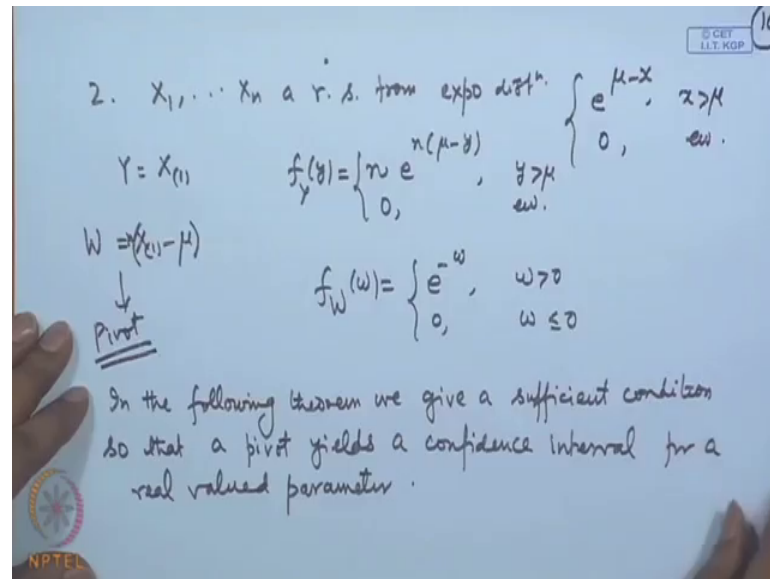 © CET
I.I.T. KGP
2. X₁, ... Xₙ a r.s. from expo distⁿ. { e^{μ-x}, x>μ
0, ew.
Y = X₍₁₎ f_Y(y) = { n e^{n(μ-y)}, y>μ
0, ew.
W = n(X₍₁₎ - μ)
↓
Pivot
f_W(w) = { e^{-w}, w>0
0, w ≤ 0
In the following theorem we give a sufficient condition
so that a pivot yields a confidence interval for a
real valued parameter.
NPTEL